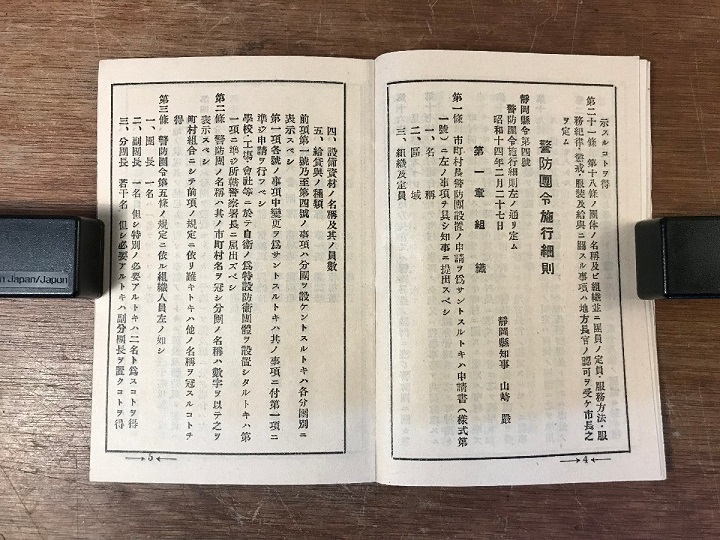 示スルコトヲ得
第二十一條 第十八條ノ團体ノ名稱及ビ組織並ニ團員ノ定員・服務方法・服
務紀律・懲戒・服裝及給與ニ關スル事項ハ地方長官ノ認可ヲ受ケ市長之
ヲ定ム
警防團令施行細則
靜岡縣令第四號
警防團令施行細則左ノ通リ定ム
昭和十四年二月二十七日
靜岡縣知事 山崎 巖
第一章 組織
第一條 市町村長警防團設置ノ申請ヲ爲サントスルトキハ申請書(樣式第
一號)ニ左ノ事項ヲ具シ知事ニ提出スベシ
一、名 稱
二、區 域
三、組織及定員
→4←
四、設備資材ノ名稱及其ノ員數
五、給貸與ノ種類
前項第一號乃至第四號ノ事項ハ分團ヲ設ケントスルトキハ各分團別ニ
表示スベシ
第一項各號ノ事項中變更ヲ爲サントスルトキハ其ノ事項ニ付第一項ニ
準ジ申請ヲ行フベシ
學校・工場・會社等ニ於テ自衛ノ爲特設防衛團體ヲ設置シタルトキハ第
一項ニ準ジ所轄警察署長ニ屆出ズベシ
第二條 警防團ノ名稱ハ其ノ市町村名ヲ冠シ分團ノ名稱ハ數字ヲ以テ之ヲ
表示スベシ
町村組合ニシテ前項ノ規定ニ依リ難キトキハ他ノ名稱ヲ冠スルコトヲ
得
第三條 警防團令第五條ノ規定ニ依ル組織人員左ノ如シ
一、團長 一名
二、副團長 一名 但シ特別ノ必要アルトキハ二名ト爲スコトヲ得
三、分團長 若干名 但シ必要アルトキハ副分團長ヲ置クコトヲ得
→5←
n Japan/Japon